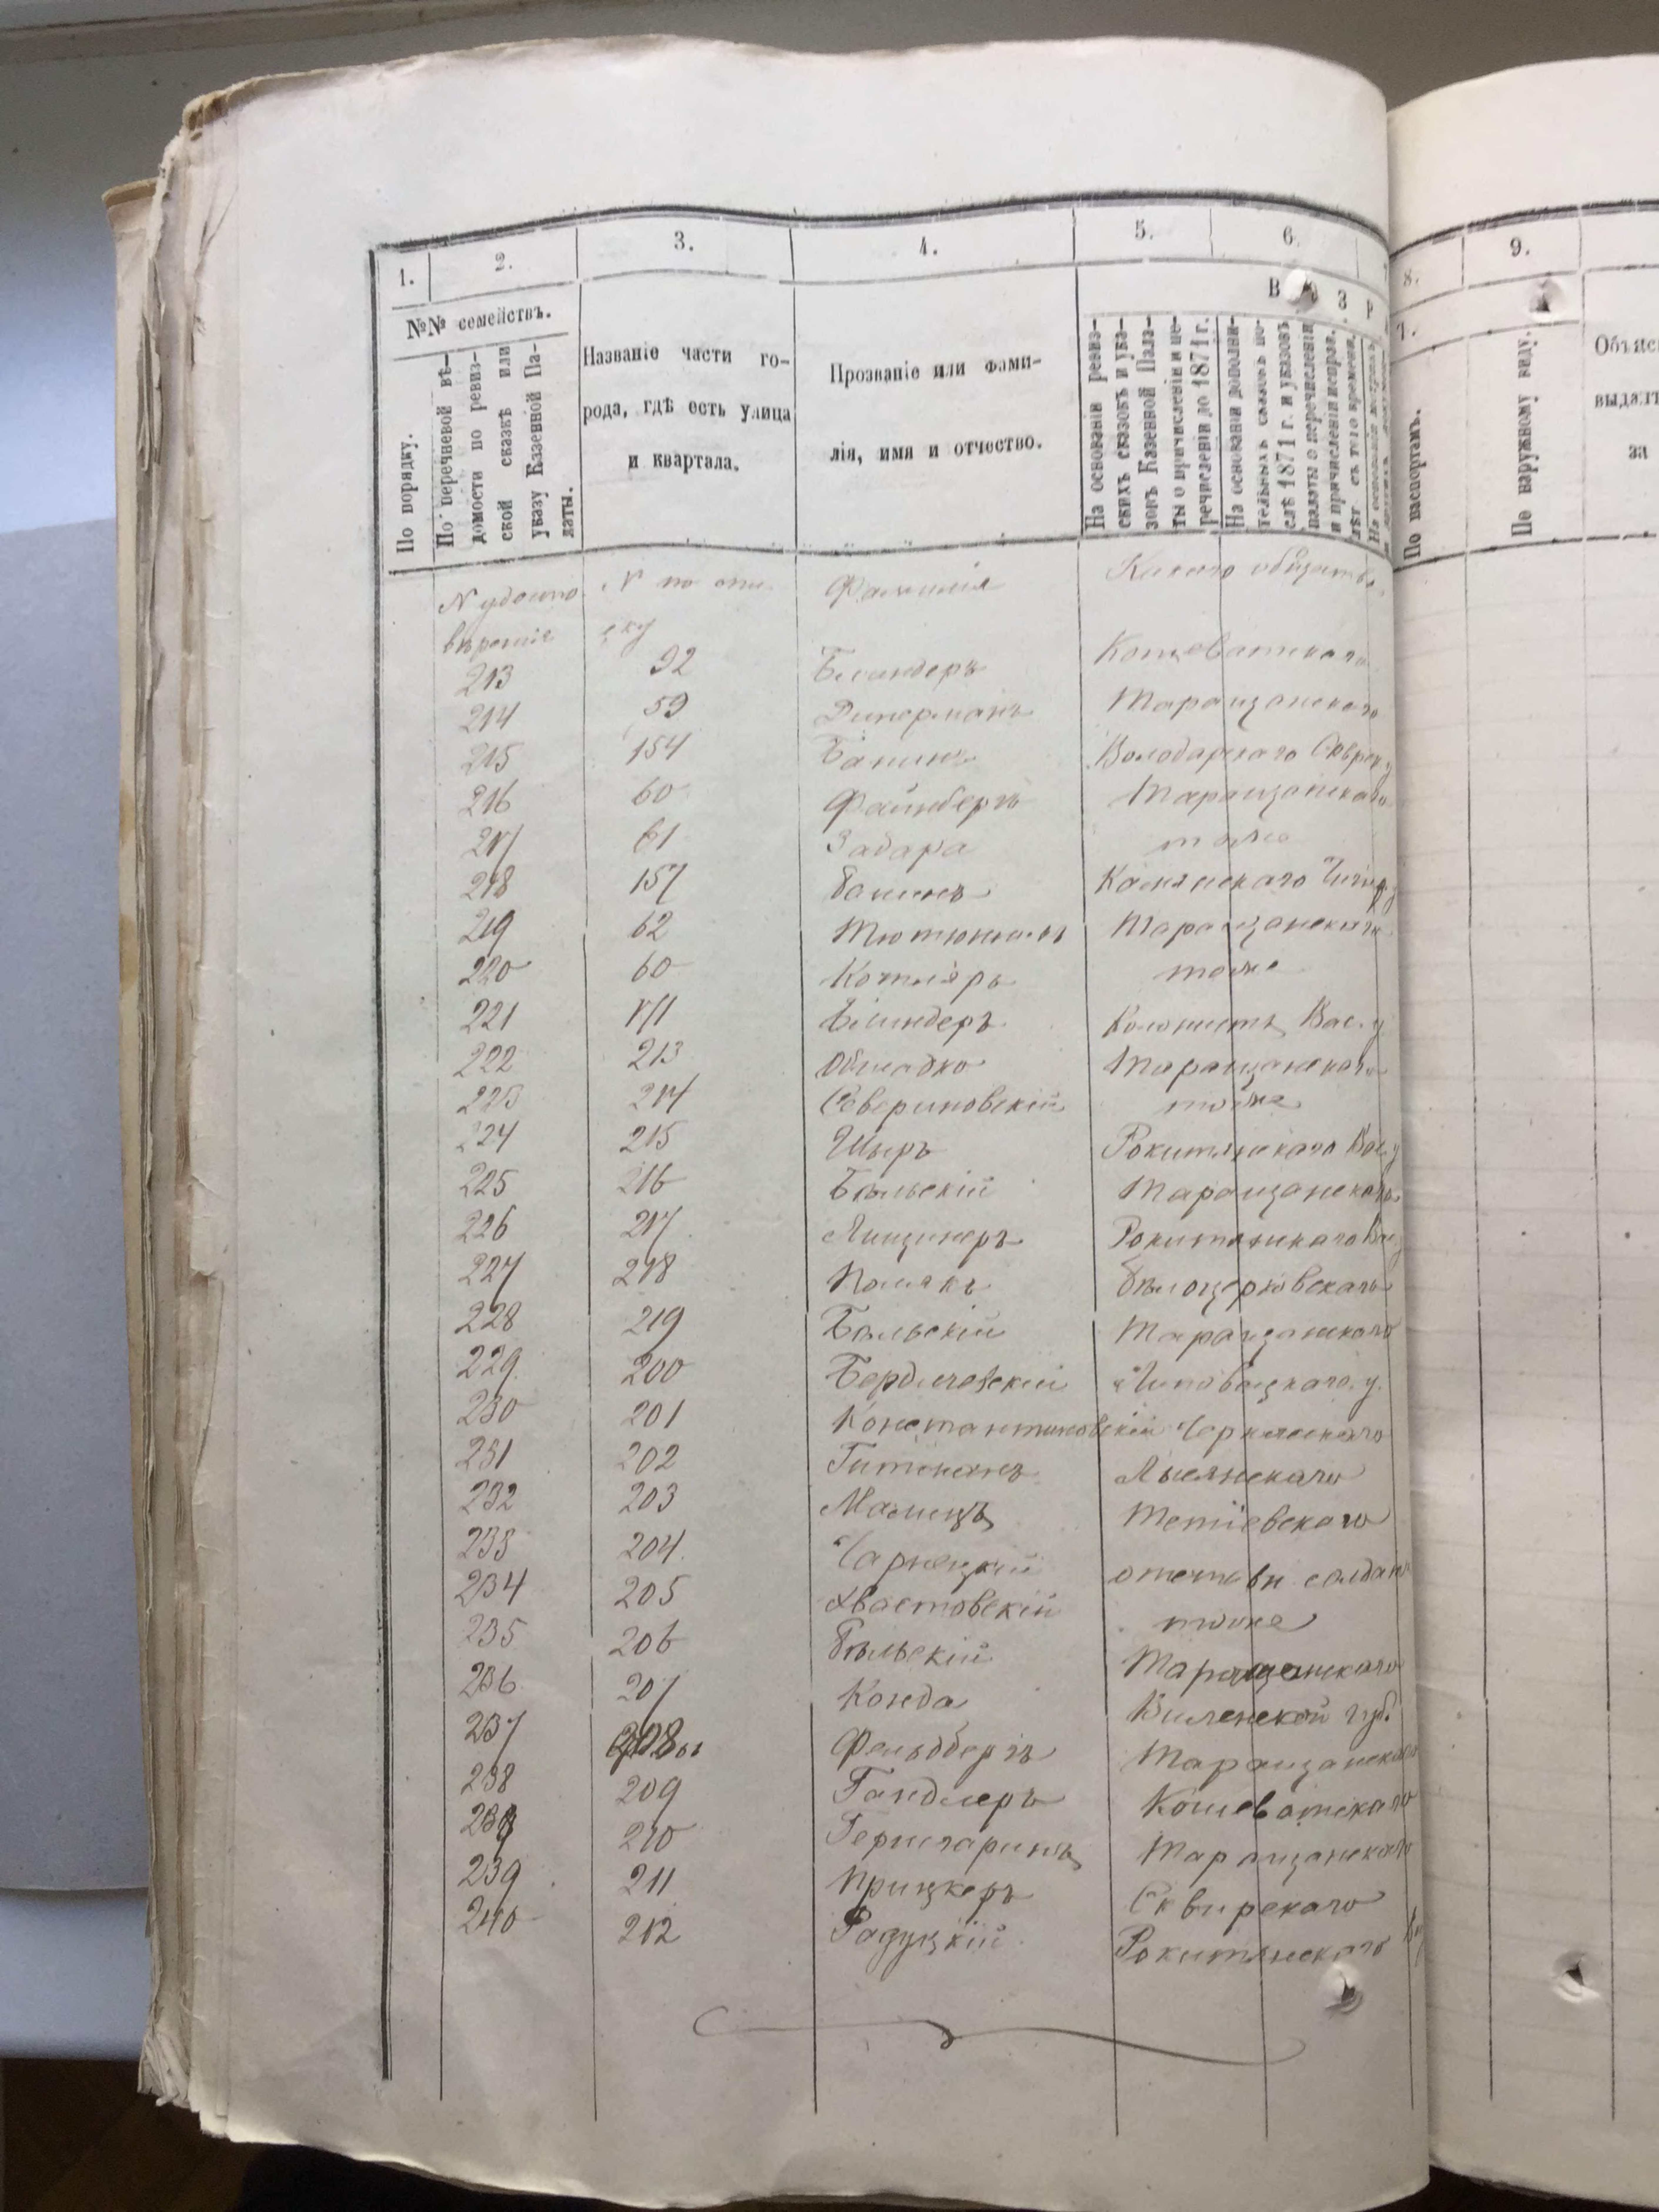 1. 2. 3. 4. 5. 6. 8. 9.
№№ семействъ.
В О З Р
7.
По порядку.
По перечневой вѣ-
домости по ревиз-
ской сказкѣ или
указу Казенной Па-
латы.
Названіе части го-
рода, гдѣ есть улица
и квартала.
Прозваніе или фами-
лія, имя и отчество.
На основаніи ревиз-
скихъ сказокъ и ука-
зовъ Казенной Пала-
ты о причисленіи и пе-
речисленіи до 1871 г.
На основаніи дополни-
тельныхъ сказокъ по-
слѣ 1871 г. и указовъ
палаты о перечисленіи
и причисленіи
По паспортамъ.
По наружному виду.
Объяс
выдат
за
N удосто N по спи Фамилія Какого общества
вѣренія ску
213 92 Блиндеръ Кошеватскаго
214 59 Динерманъ Таращанскаго
215 154 Банинъ Володарскаго Сквирск у
216 60 Файнбергъ Таращанскаго
217 61 Задара тоже
218 157 Каменскаго Чигир у
219 62 Тютюнникъ Таращанскаго
220 60 Котляръ тоже
221 171 Блиндеръ Колонистъ Вас. у
222 213 Обладко Таращанскаго
223 214 Севериновскій тоже
224 215 Шыръ Рокитянскаго Вас у
225 216 Бѣльскій Таращанскаго
226 217 Линцинеръ Рокитянскаго Вас у
227 218 Полякъ Бѣлоцерковскаго
228 219 Бѣльскій Таращанскаго
229 200 Бердичевскій Липовецкаго у.
230 201 Константиновскій Черкасскаго
231 202 Гитманъ Лысянскаго
232 203 Малицъ Тетіевскаго
233 204 Чарнецкій отставн солдат
234 205 Хвастовскій тоже
235 206 Бѣльскій Таращанскаго
236 207 Конда Виленской губ.
237 208 Фельдбергъ Таращанскаго
238 209 Гандлеръ Кошеватскаго
238 210 Таращанскаго
239 211 Прицкеръ Сквирскаго
240 212 Радуцкій Рокитянскаго